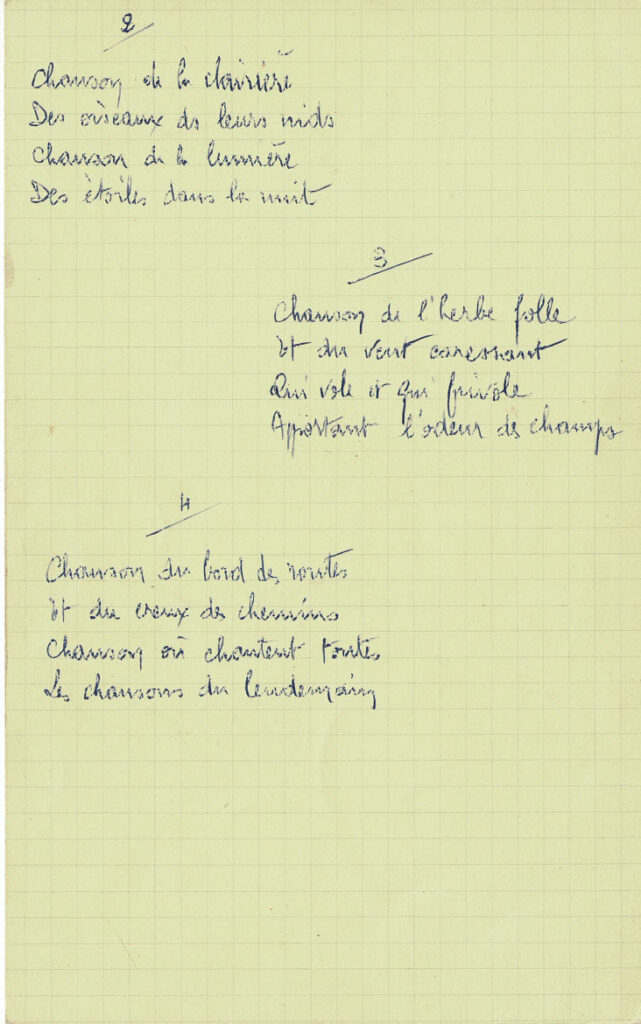 2
Chanson de la clairière
Des oiseaux de leurs nids
Chanson de la lumière
Des étoiles dans la nuit
3
Chanson de l'herbe folle
Et du vent caressant
Qui vole et qui frivole
Apportant l'odeur des champs
4
Chanson du bord des routes
Et du creux des chemins
Chanson où chantent toutes
Les chansons du lendemain